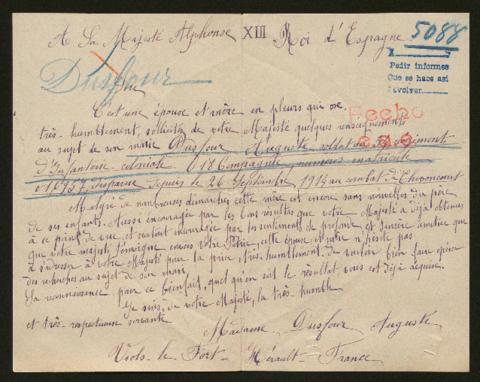 A Sa Majesté Alphonse XIII Roi d'Espagne
5088
Pedir informes
Que se haga así
Devolver
Dusfour
Sire
C'est une épouse et mère en pleurs qui ose
très-humblement, solliciter de votre Majesté quelques renseignements
Fecho
au sujet de son marie Dusfour Auguste soldat au Régiment
d'Infanterie coloniale 17 Compagnie, numéro matricule
disparu depuis le 26 Septembre 1914 au combat
Malgré de nombreuses démarches cette mère est encore sans nouvelles du père
de ses enfants. Aussi encouragée par les bons résultats que votre Majesté a déjà obtenus
à ce point de vue et surtout encouragée par les sentiments de profonde et sincère amitié que
votre majesté témoigne envers votre Patrie, cette épouse et mère n'hésite pas
à s'adresser à votre Majesté pour la prier, très-humblement, de vouloir bien faire opérer
des recherches au sujet de son mari.
Sa reconnaissance pour ce bienfait, quel qu'en soit le résultat vous est déjà acquise.
Je suis, de votre Majesté, la très-humble
et très-respectueuse servante
Madame Dusfour Auguste
Viols-le-Fort - Hérault - France